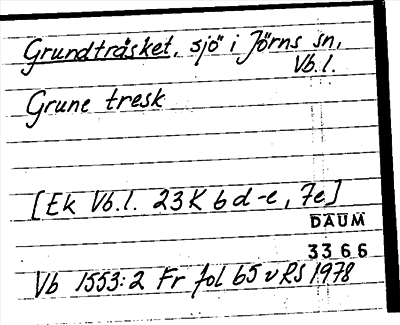 Grundträsket, sjö i Jörns sn,
Vb.l.
Grune tresk
[Ek Vb.l. 23K 6d-e, 7e]
DAUM
3366
Vb 1553:2 Fr fol 65 v RS 1978